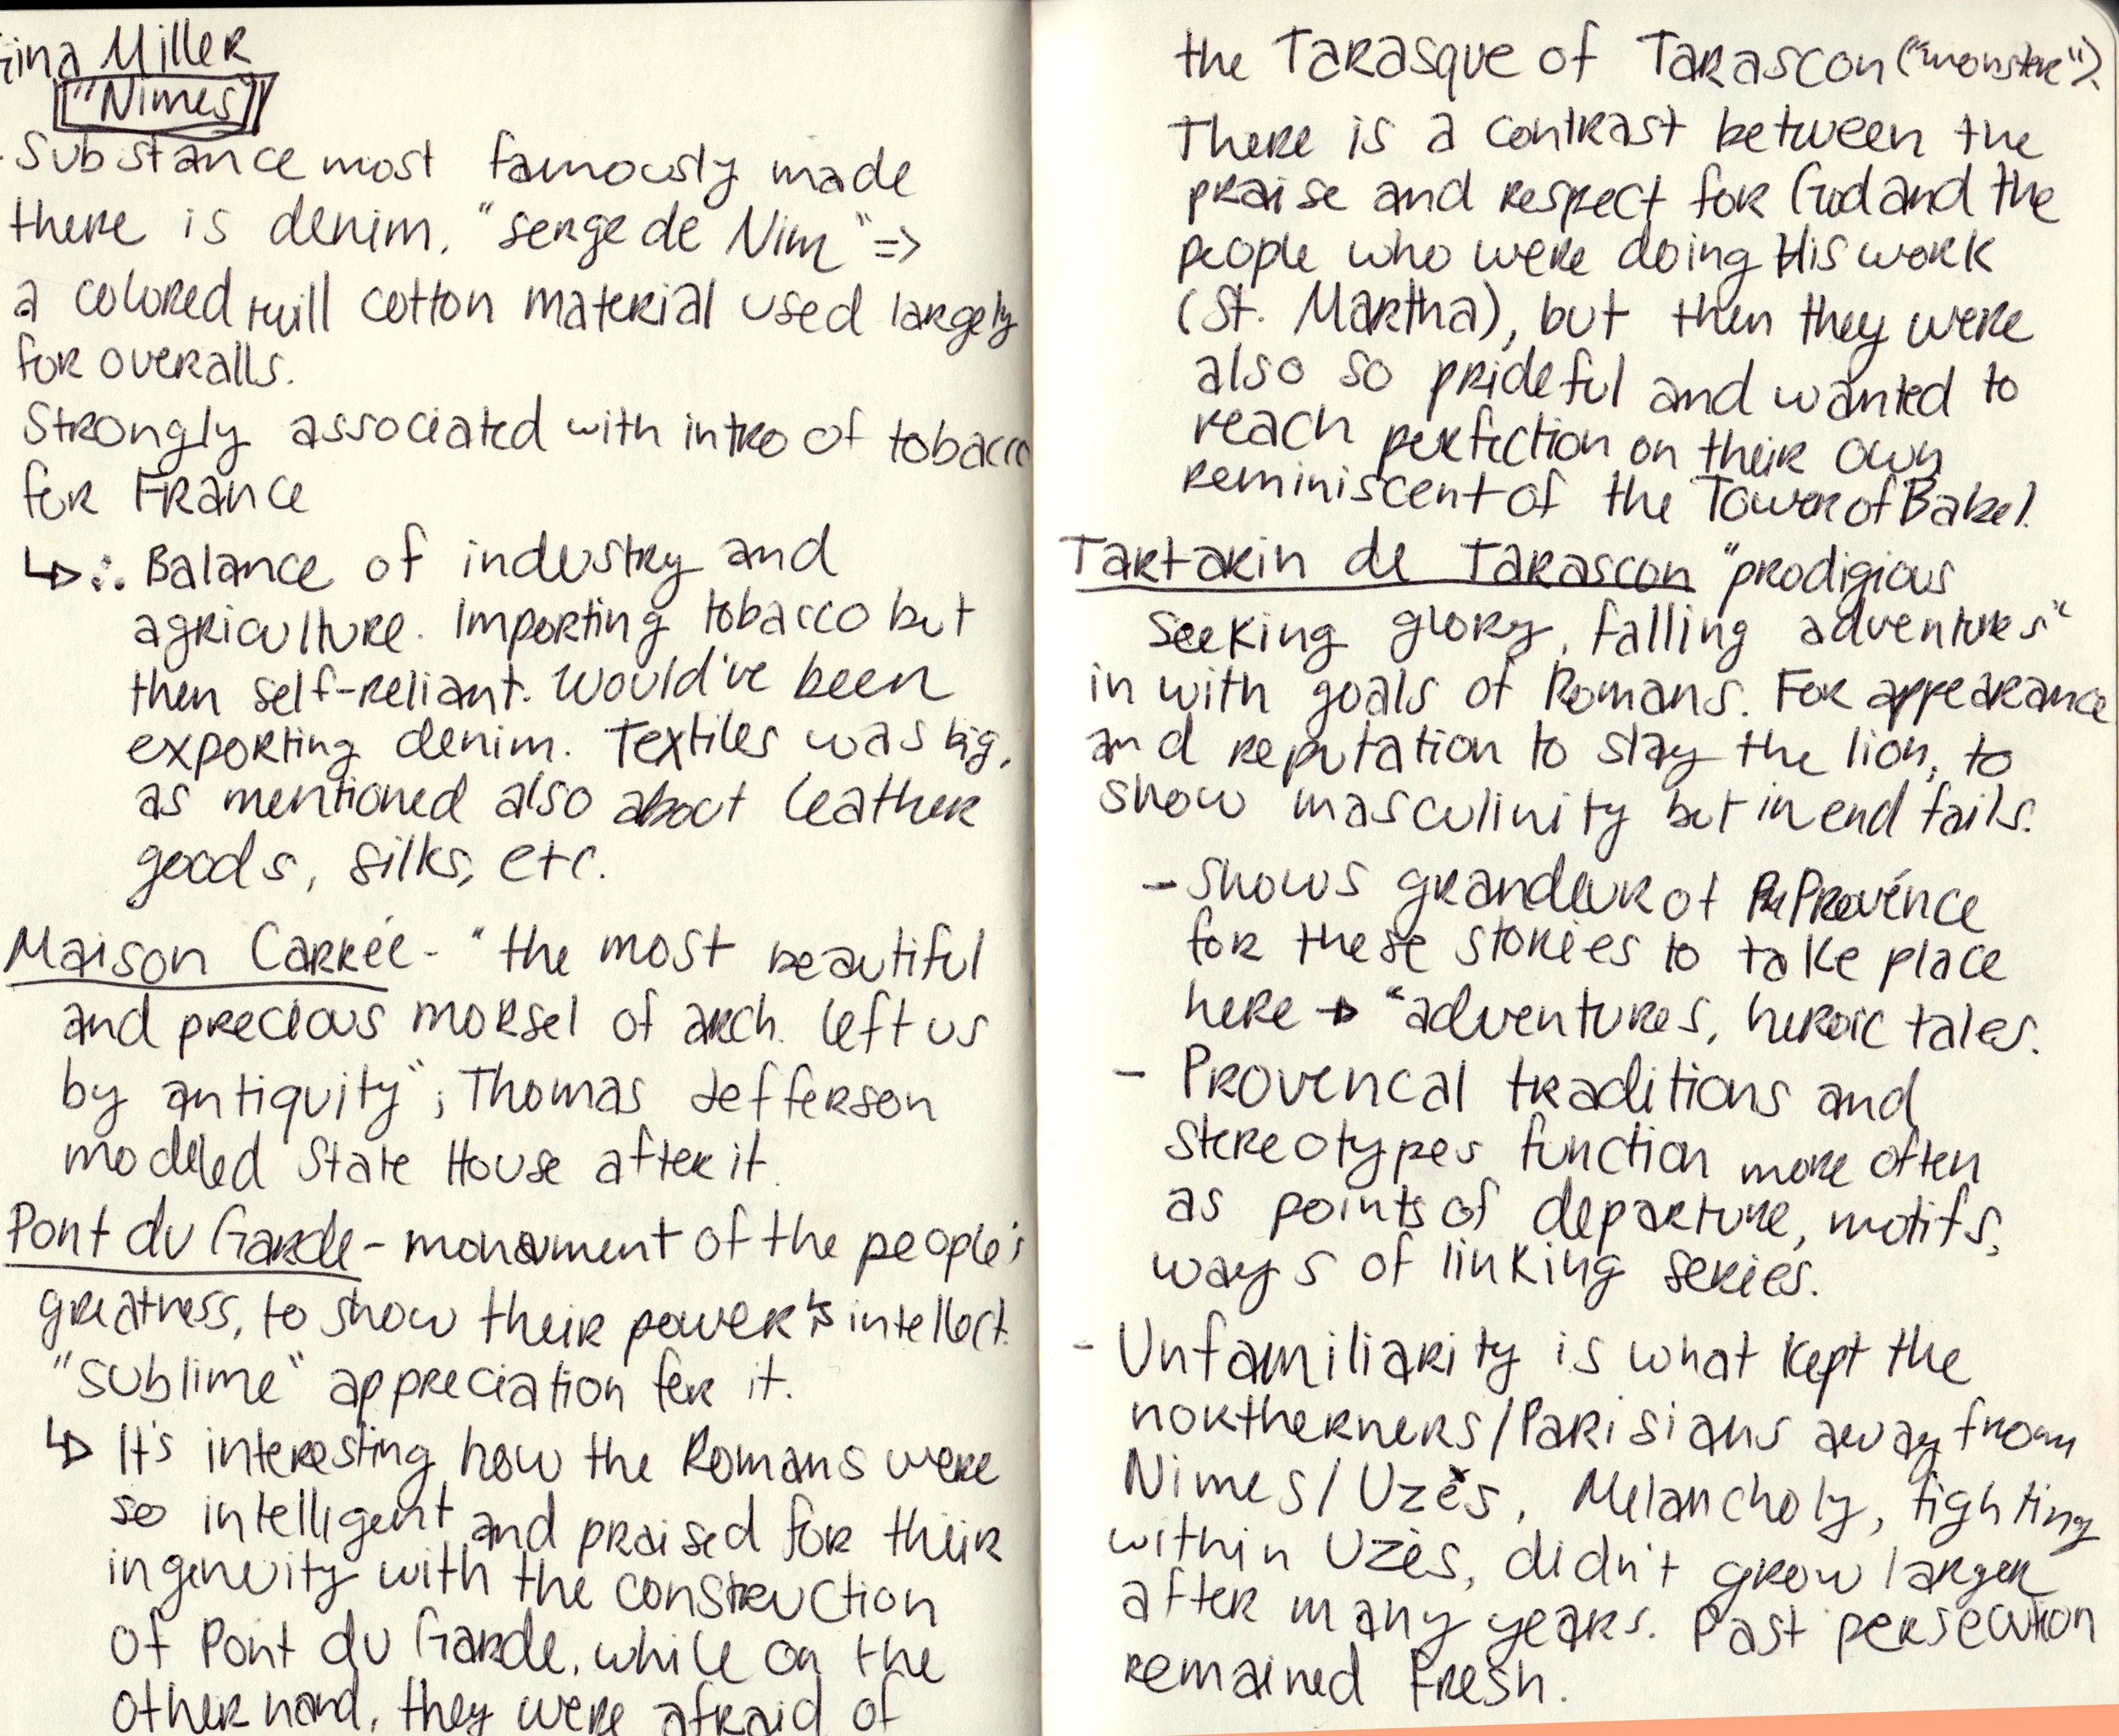 Gina Miller
"Nimes"
- Substance most famously made
there is denim. "serge de Nim" =>
a colored twill cotton material used largely
for overalls.
Strongly associated with intro of tobacco
for France
↳ ∴ Balance of industry and
agriculture. Importing tobacco but
then self-reliant. Would've been
exporting denim. Textiles was big,
as mentioned also about leather
goods, silks, etc.
Maison Carrée - "the most beautiful
and precious morsel of arch. left us
by antiquity"; Thomas Jefferson
modeled State House after it.
Pont du Garde - monument of the people's
greatness, to show their power & intellect.
"sublime" appreciation for it.
↳ It's interesting how the Romans were
so intelligent and praised for their
ingenuity with the construction
of Pont du Garde, while on the
other hand, they were afraid of
the Tarasque of Tarascon ("monstre").
There is a contrast between the
praise and respect for God and the
people who were doing His work
(St. Martha), but then they were
also so prideful and wanted to
reach perfection on their own
reminiscent of the Tower of Babel.
Tartarin de Tarascon "prodigious
seeking glory, falling adventures"
in with goals of Romans. For appearance
and reputation to slay the lion, to
show masculinity but in end fails.
- Shows grandeur of Provénce
for these stories to take place
here → "adventures, heroic tales.
- Provencal traditions and
stereotypes function more often
as points of departure, motifs,
ways of linking series.
- Unfamiliarity is what kept the
northerners/Parisians away from
Nimes/Uzès. Melancholy, fighting
within Uzès, didn't grow larger
after many years. Past persecution
remained fresh.